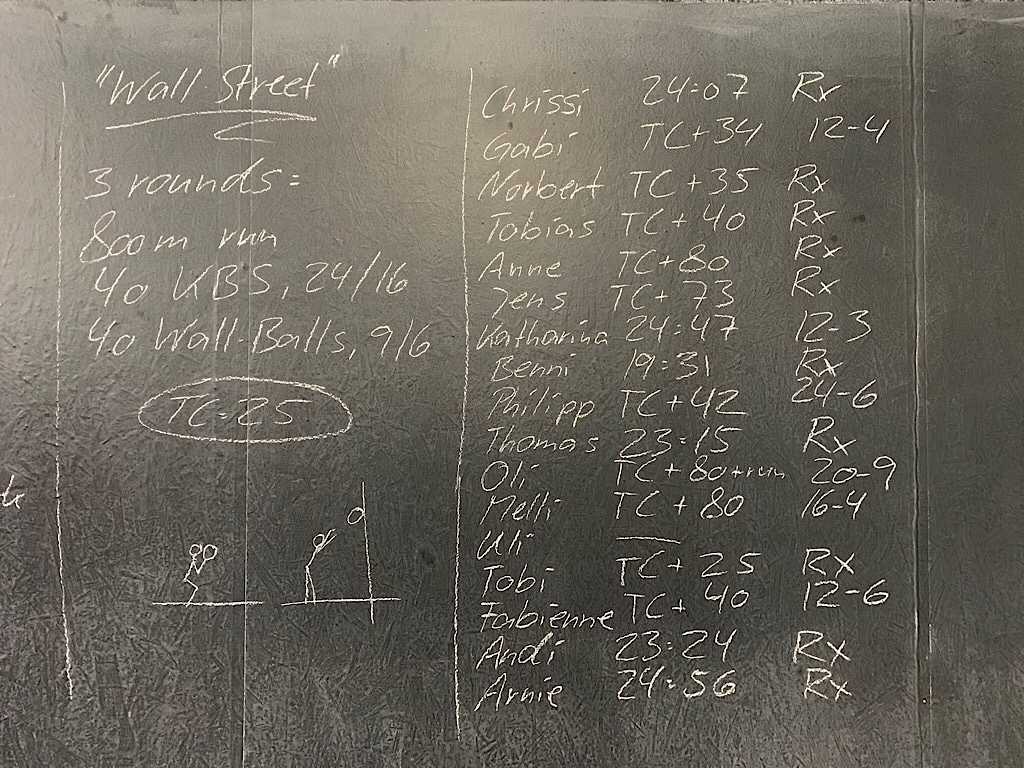 "Wall Street"
3 rounds:
800m run
40 KBS, 24/16
40 Wall-Balls, 9/6
TC=25
Chrissi 24:07 Rx
Gabi TC+34 12-4
Norbert TC+35 Rx
Tobias TC+40 Rx
Anne TC+80 Rx
Jens TC+73 Rx
Katharina 24:47 12-3
Benni 19:31 Rx
Philipp TC+42 24-6
Thomas 23:15 Rx
Oli TC+80+run 20-9
Melli TC+80 16-4
Uli —
Tobi TC+25 Rx
Fabienne TC+40 12-6
Andi 23:24 Rx
Arnie 24:56 Rx